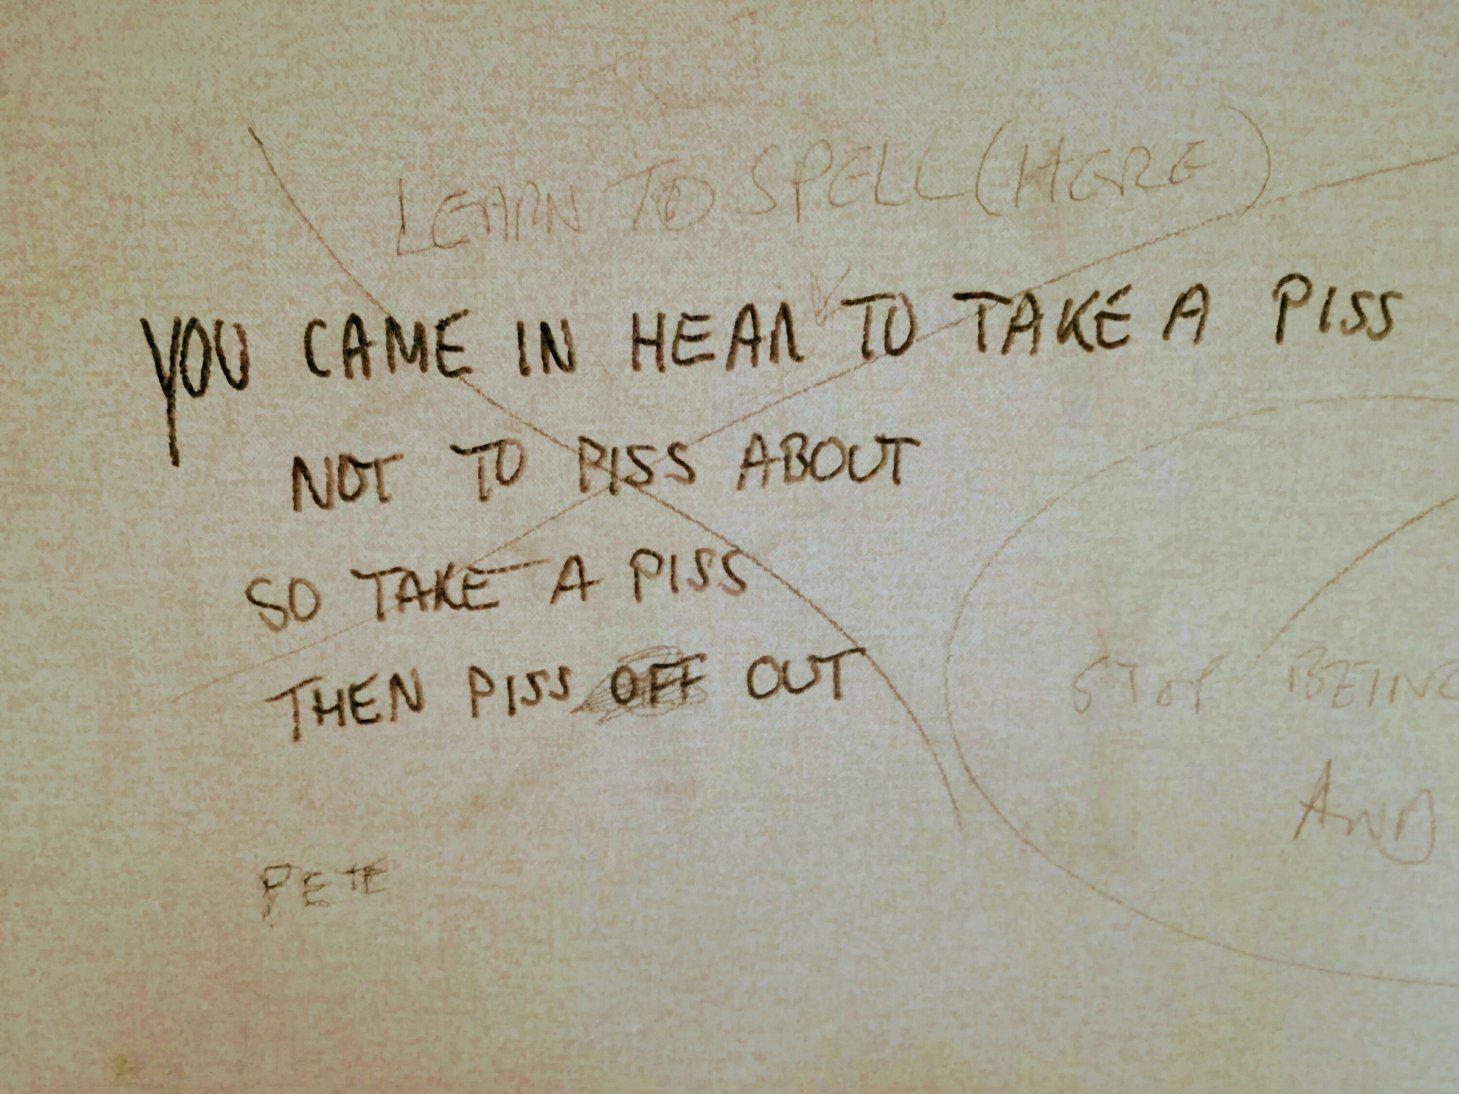 LEARN TO SPELL (HERE)
YOU CAME IN HEAR TO TAKE A PISS
NOT TO PISS ABOUT
SO TAKE A PISS
THEN PISS OFF OUT
STOP BEING
AND
PETE